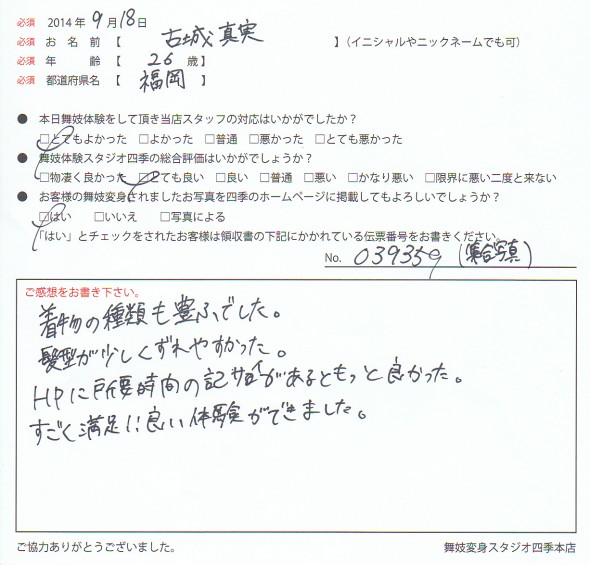 必須 2014年 9月18日
必須 お名前【 古城 真実 】(イニシャルやニックネームでも可)
必須 年齢【 26 歳】
必須 都道府県名【 福岡 】
● 本日舞妓体験をして頂き当店スタッフの対応はいかがでしたか？
□とてもよかった □よかった □普通 □悪かった □とても悪かった
● 舞妓体験スタジオ四季の総合評価はいかがでしょうか？
□物凄く良かった □とても良い □良い □普通 □悪い □かなり悪い □限界に悪い二度と来ない
● お客様の舞妓変身されましたお写真を四季のホームページに掲載してもよろしいでしょうか？
□はい □いいえ □写真による
「はい」とチェックをされたお客様は領収書の下記にかかれている伝票番号をお書きください。
No. 039359 (集合写真)
ご感想をお書き下さい。
着物の種類も豊ふでした。
髪型が少しくずれやすかった。
HPに所要時間の記サイがあるともっと良かった。
すごく満足に良い体験ができました。
ご協力ありがとうございました。
舞妓変身スタジオ四季本店